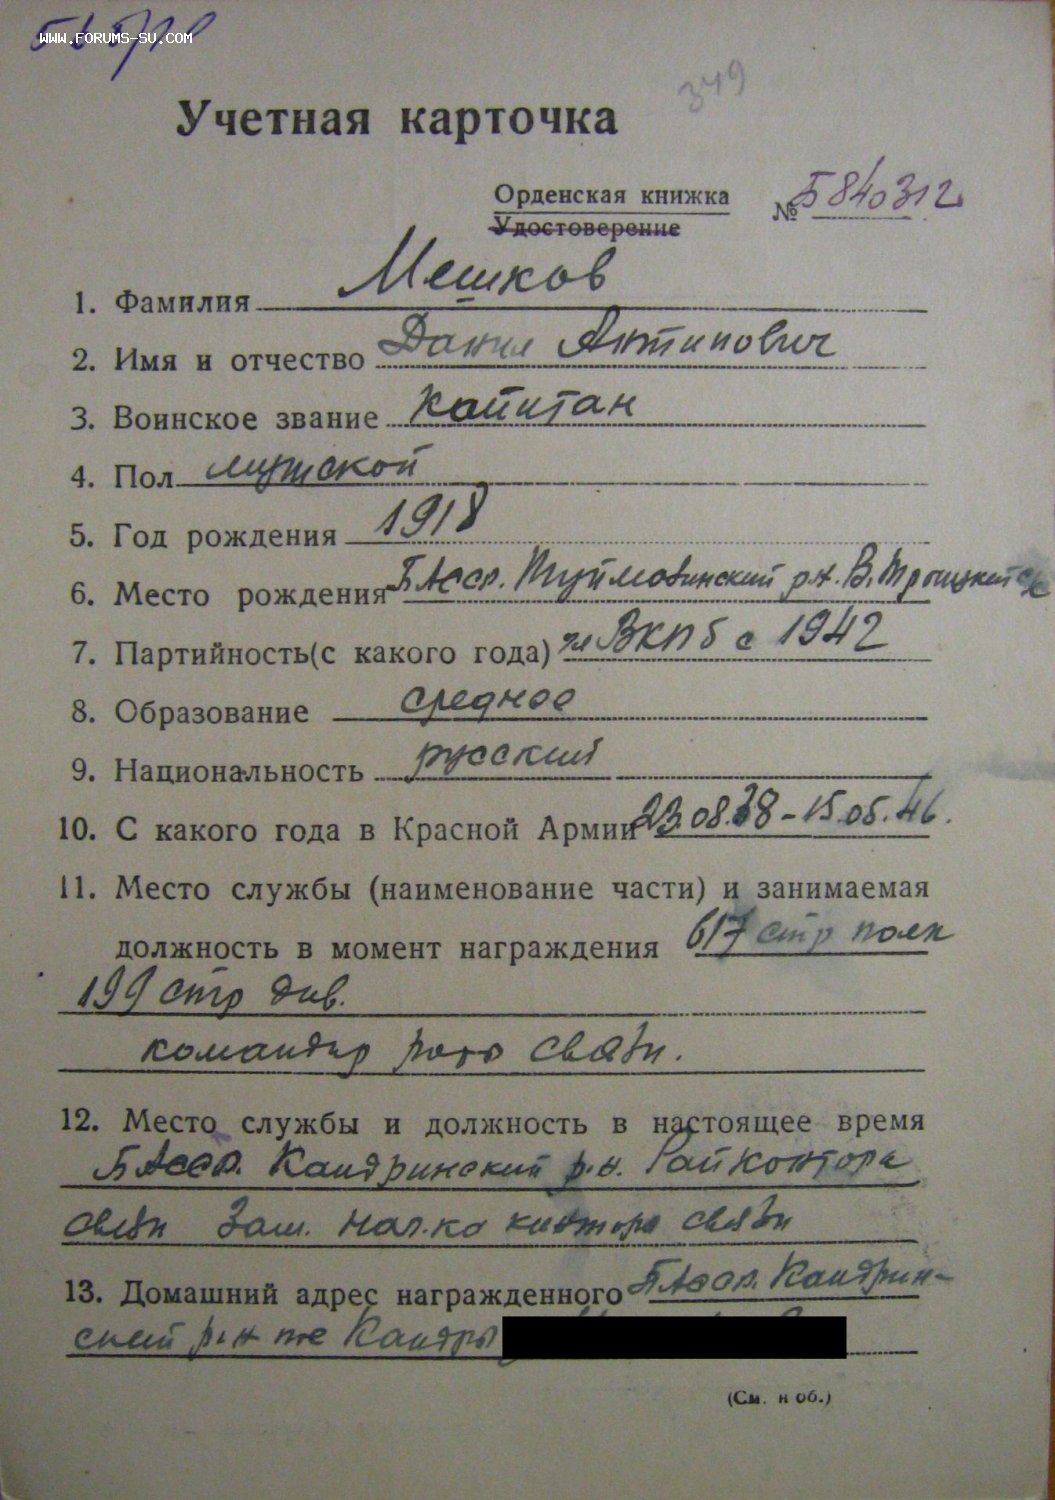 WWW.FORUMS-SU.COM
349
Учетная карточка
Орденская книжка № Б840312
Удостоверение
1. Фамилия Мешков
2. Имя и отчество Данил Антипович
3. Воинское звание капитан
4. Пол мужской
5. Год рождения 1918
6. Место рождения БАССР. Туймазинский р-н. В. Троицкий
7. Партийность(с какого года) чл ВКПб с 1942
8. Образование среднее
9. Национальность русский
10. С какого года в Красной Армии 23.08.38-15.05.46.
11. Место службы (наименование части) и занимаемая
должность в момент награждения 617 стр полк
199 стр див.
командир роты связи.
12. Место службы и должность в настоящее время
БАССР. Кандринский р.н. Райконтора
связи Зам. нач.ка конторы связи
13. Домашний адрес награжденного БАССР. Кандрин-
ский р-н Кандры
(См. н об.)